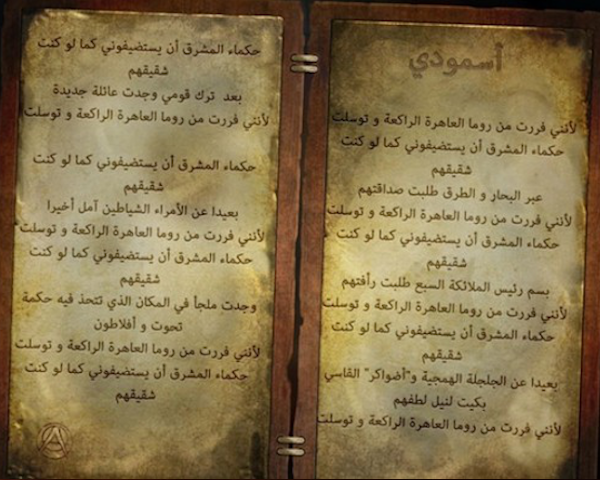 أسمودي
لأنني فررت من روما العاهرة الراكعة و توسلت
حكماء المشرق أن يستضيفوني كما لو كنت
شقيقهم
عبر البحار و الطرق طلبت صداقتهم
لأنني فررت من روما العاهرة الراكعة و توسلت
حكماء المشرق أن يستضيفوني كما لو كنت
شقيقهم
بسم رئيس الملائكة السبع طلبت رأفتهم
لأنني فررت من روما العاهرة الراكعة و توسلت
حكماء المشرق أن يستضيفوني كما لو كنت
شقيقهم
بعيدا عن الجلجلة الهمجية و"أضواكر" القاسي
بكيت لنيل لطفهم
لأنني فررت من روما العاهرة الراكعة و توسلت
حكماء المشرق أن يستضيفوني كما لو كنت
شقيقهم
بعد ترك قومي وجدت عائلة جديدة
لأنني فررت من روما العاهرة الراكعة و توسلت
حكماء المشرق أن يستضيفوني كما لو كنت
شقيقهم
بعيدا عن الأمراء الشياطين آمل أخيرا
لأنني فررت من روما العاهرة الراكعة و توسلت
حكماء المشرق أن يستضيفوني كما لو كنت
شقيقهم
وجدت ملجأ في المكان الذي تتحد فيه حكمة
تحوت و أفلاطون
لأنني فررت من روما العاهرة الراكعة و توسلت
حكماء المشرق أن يستضيفوني كما لو كنت
شقيقهم